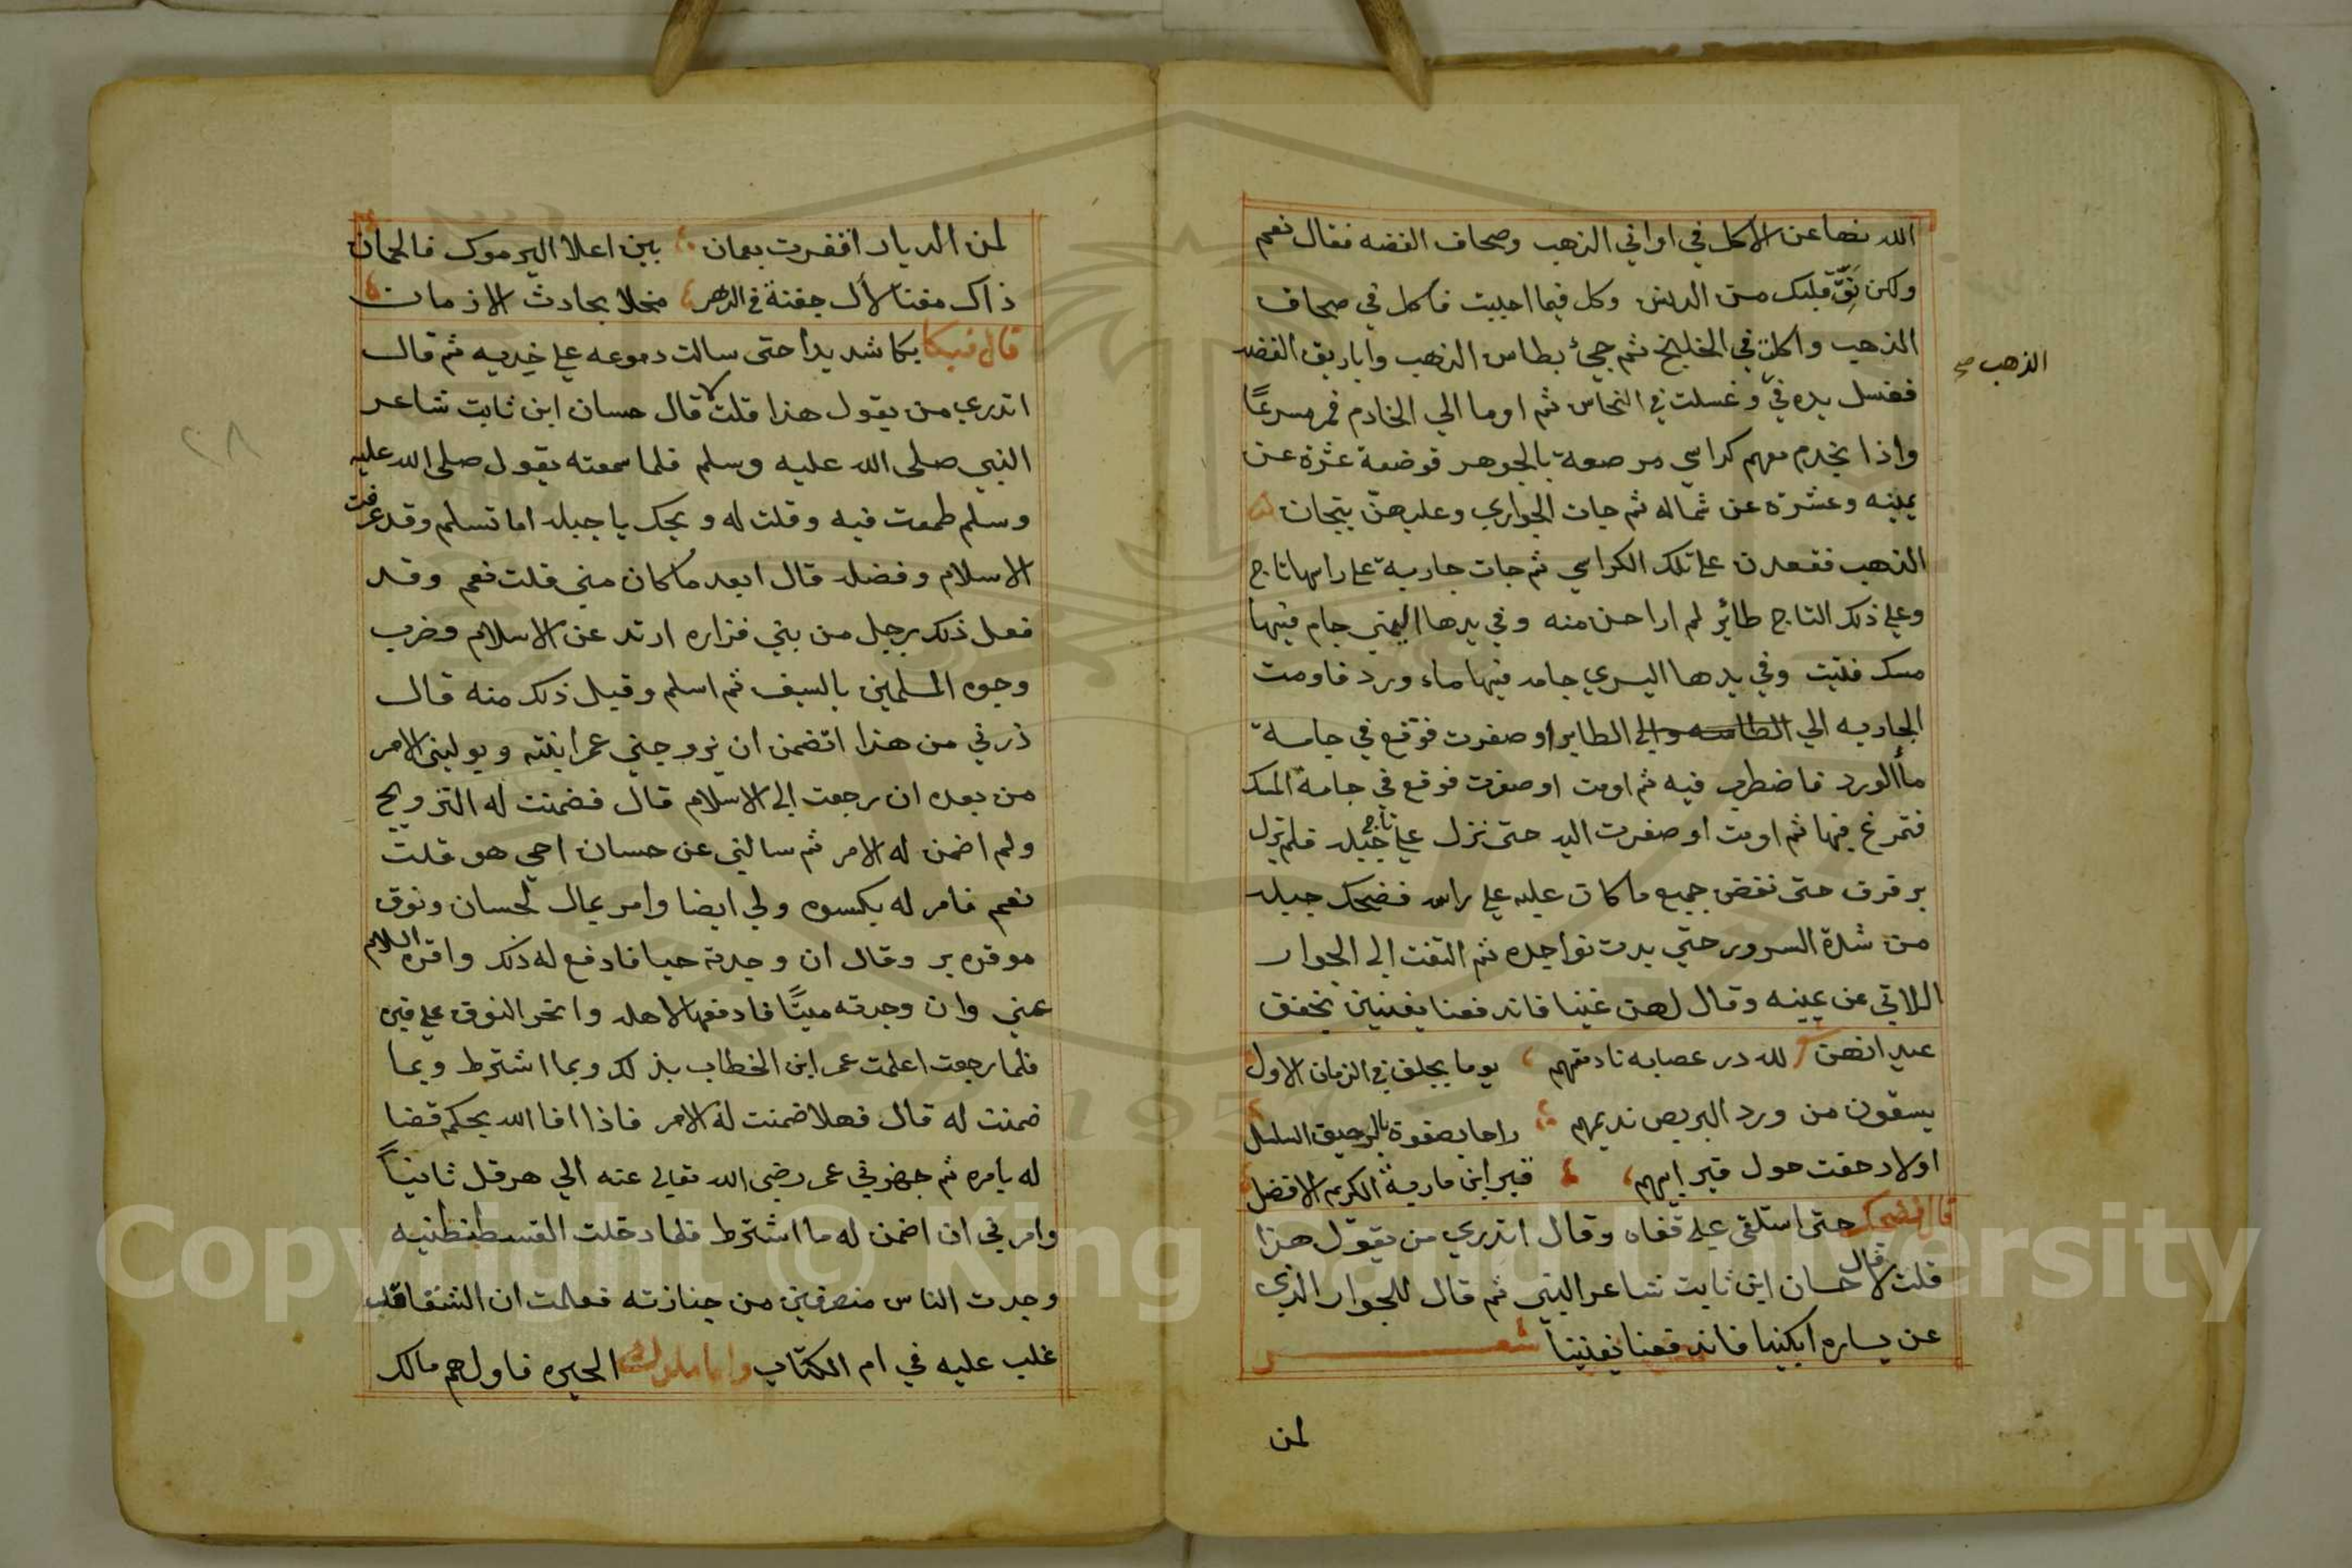 الله نها عن الاكل في اواني الذهب وصحاف الفضه فقال نعم
ولكن نَقِّ قلبك من الدنس وكل فيما احببت فاكل في صحاف
الذهب واكلت في الخليخ ثم جيء بطاس الذهب واباريق الفضه
فغسل يده في وغسلت في النحاس ثم اوما الي الخادم فمر مسرعًا
الذهب صح
واذا بخدم معهم كراسي مرصعة بالجوهر فوضعة عشرة عن
يمينه وعشرة عن شماله ثم جات الجواري وعليهنّ تيجان
الذهب فقعدن على تلك الكراسي ثم جات جارية على راسها تاج
وعلي ذلك التاج طائر لم ارا احسن منه وفي يدها اليمني جام فيها
مسك فتيت وفي يدها اليسري جامه فيها ماء ورد فاومت
الجاريه الي الطاسه والي الطاير او صفرت فوقع في جامة
مأالورد فاضطرب فيه ثم اومت او صفرت فوقع في جامة المسك
فتمرغ فيها ثم اومت او صفرت اليه حتى نزل علي تاج جبله فلم يزل
يرفرف حتى نفض جميع ما كان عليه علي راسه فضحك جبله
من شدة السرور حتي بدت نواجده ثم التفت الى الجوار
اللاتي عن يمينه وقال لهن غنينا فاندفعنا يغنين بخفق
عيدانهن لله در عصابه نادمتهم يوما بجلق في الزمان الاول
يسقون من ورد البريص نديمهم راحا يصفوة بالرحيق السلسل
اولاد جفنت حول قبر ابيهم قبر ابن مارية الكريم الافضل
قال فضحك حتى استلقى علي قفاه وقال اتدري من يقول هذا
قلت لا قال حسان ابن ثابت شاعر النبي ثم قال للجوار الذي
عن يساره ابكينا فاندفعنا يغنينا شعر
لمن
لمن الديار اقفرت بعمان بين اعلا اليرموك فالحمان
ذاك مغنا لأل جفنة في الدهر محلا بحادث الازمان
قال فبكا بكا شديدا حتى سالت دموعه علي خديه ثم قال
اتدري من يقول هذا قلت لا قال حسان ابن ثابت شاعر
النبي صلى الله عليه وسلم فلما سمعته يقول صلى الله عليه
وسلم طمعت فيه وقلت له ويحك يا جبله اما تسلم وقد عرفت
الاسلام وفضله قال ابعد ما كان مني قلت نعم وقد
فعل ذلك رجل من بني فزاره ارتد عن الاسلام وضرب
وجوه المسلمين بالسيف ثم اسلم وقبل ذلك منه قال
ذرني من هذا اتضمن ان يزوجني عمر ابنته ويوليني الامر
من بعده ان رجعت الى الاسلام قال فضمنت له التزويج
ولم اضمن له الامر ثم سالني عن حسان احي هو قلت
نعم فامر له بكسوه ولي ايضا وامر بمال لحسان ونوق
موقره بر وقال ان وجدته حيا فادفع له ذلك واقره السلام
عني وان وجدته ميتًا فادفعها لاهله وانحر النوق علي قبره
فلما رجعت اعلمت عمر ابن الخطاب بذلك وبما اشترط وبما
ضمنت له قال فهلا ضمنت له الامر فاذا افا الله يحكم قضا
له بامره ثم جهزني عمر رضى الله تعالى عنه الي هرقل ثانياً
وامرني ان اضمن له ما اشترط فلما دخلت القسطنطنيه
وجدت الناس منصرفين من جنازته فعلمت ان الشقا قد
غلب عليه في ام الكتاب واما ملوك الحيره فاولهم مالك
٢٨
Copyright © King Saud University
1957